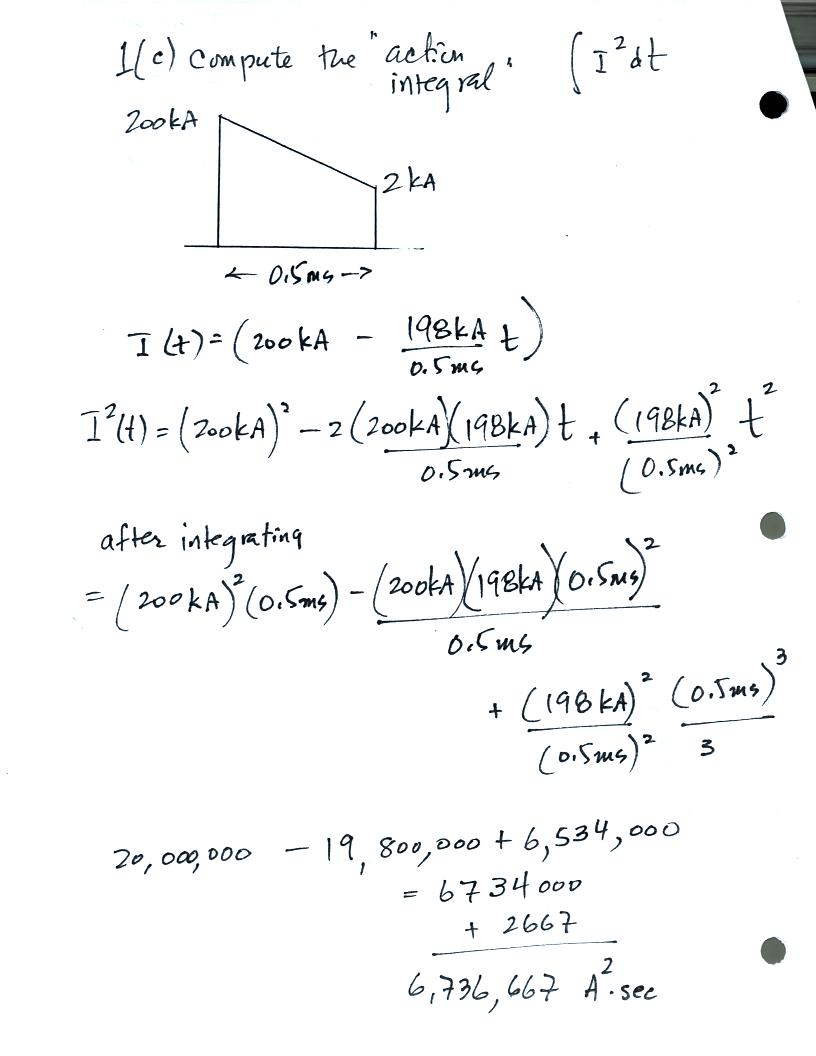 1(c) Compute the "action integral" ∫I²dt
200kA
2 kA
← 0.5ms →
I(t) = (200kA - 198kA/0.5ms t)
I²(t) = (200kA)² - 2(200kA)(198kA)/0.5ms t + (198kA)²/(0.5ms)² t²
after integrating
= (200kA)²(0.5ms) - (200kA)(198kA)(0.5ms)²/0.5ms
+ (198kA)²/(0.5ms)² (0.5ms)³/3
20,000,000 - 19,800,000 + 6,534,000
= 6734000
+ 2667
6,736,667 A²·sec